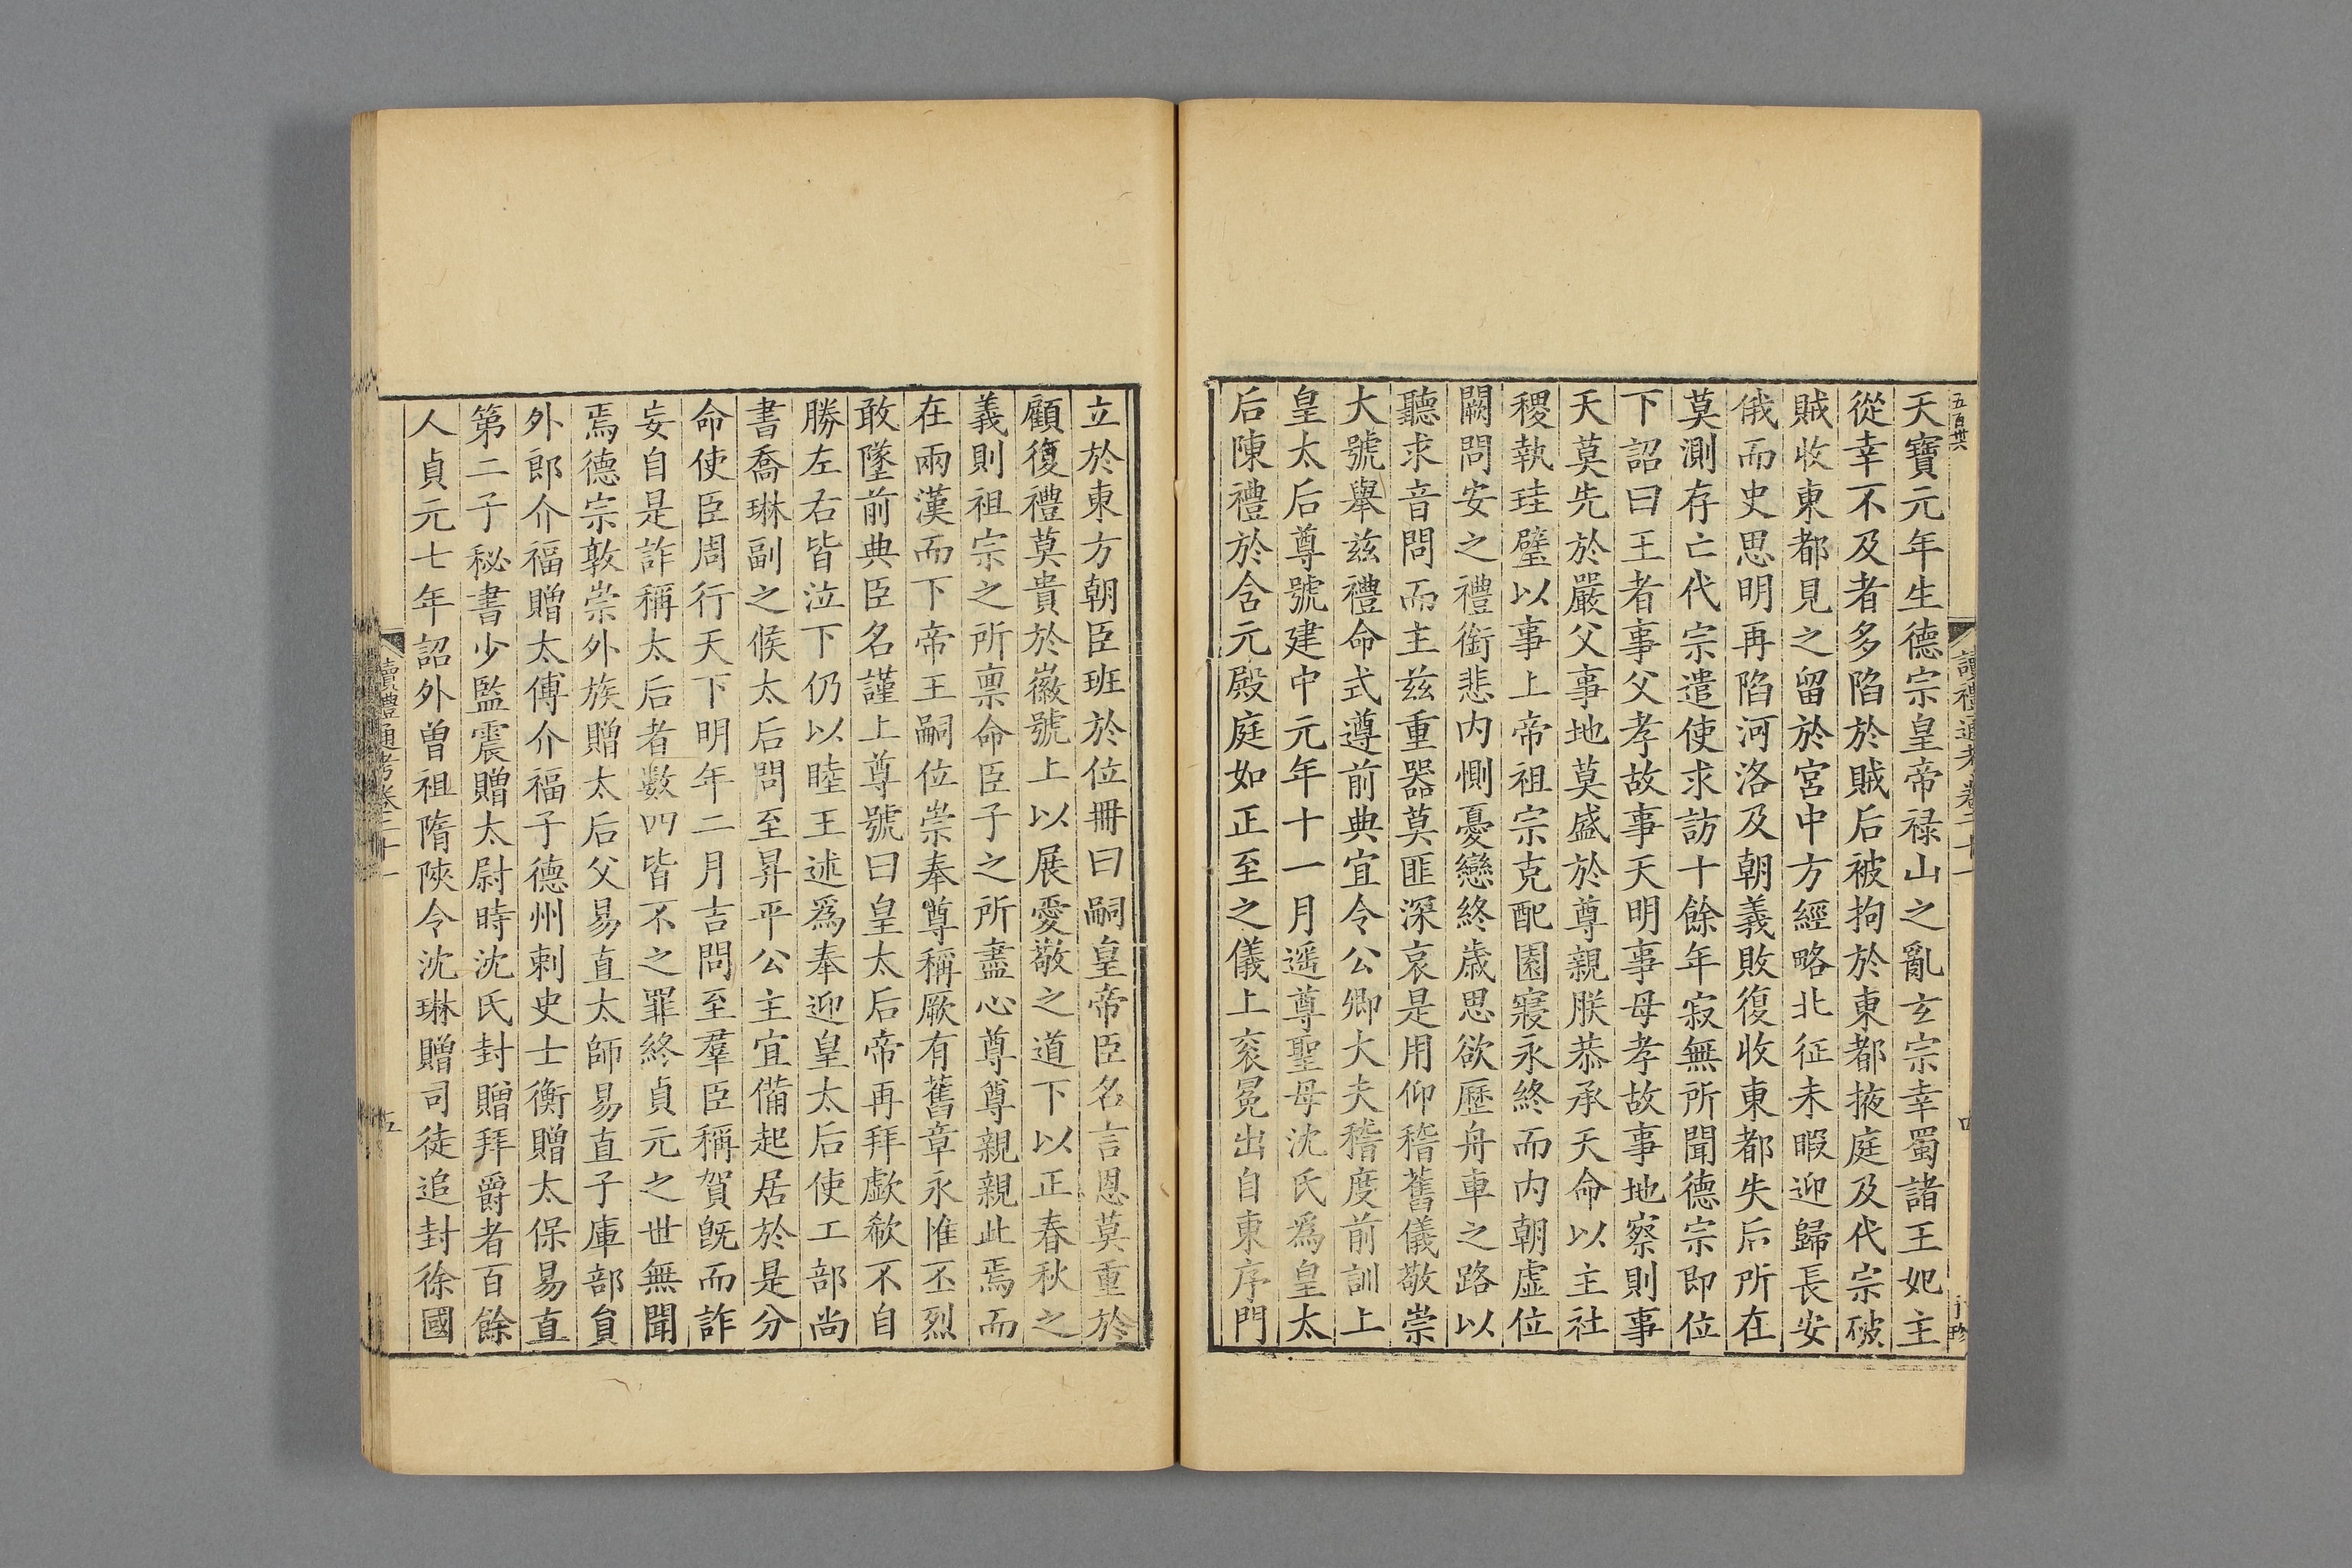 五百卅六
讀禮通考卷二十一
四
天寶元年生德宗皇帝禄山之亂玄宗幸蜀諸王妃主
從幸不及者多陷於賊后被拘於東都掖庭及代宗破
賊收東都見之留於宮中方經略北征未暇迎歸長安
俄而史思明再陷河洛及朝義敗復收東都失后所在
莫測存亡代宗遣使求訪十餘年寂無所聞德宗即位
下詔曰王者事父孝故事天明事母孝故事地察則事
天莫先於嚴父事地莫盛於尊親朕恭承天命以主社
稷執珪璧以事上帝祖宗克配園寢永終而内朝虛位
闕問安之禮銜悲内惻憂戀終歲思欲歷舟車之路以
聽求音問而主兹重器莫匪深哀是用仰稽舊儀敬崇
大號舉兹禮命式遵前典宜令公卿大夫稽度前訓上
皇太后尊號建中元年十一月遥尊聖母沈氏爲皇太
后陳禮於含元殿庭如正至之儀上衮冕出自東序門
立於東方朝臣班於位冊曰嗣皇帝臣名言恩莫重於
顧復禮莫貴於徽號上以展愛敬之道下以正春秋之
義則祖宗之所禀命臣子之所盡心尊尊親親此焉而
在兩漢而下帝王嗣位崇奉尊稱厥有舊章永惟丕烈
敢墜前典臣名謹上尊號曰皇太后帝再拜歔欷不自
勝左右皆泣下仍以睦王述爲奉迎皇太后使工部尚
書喬琳副之候太后問至昇平公主宜備起居於是分
命使臣周行天下明年二月吉問至羣臣稱賀旣而詐
妄自是詐稱太后者數四皆不之罪終貞元之世無聞
焉德宗敦崇外族贈太后父易直太師易直子庫部員
外郎介福贈太傅介福子德州刺史士衡贈太保易直
第二子秘書少監震贈太尉時沈氏封贈拜爵者百餘
人貞元七年詔外曾祖隋陝令沈琳贈司徒追封徐國
讀禮通考卷二十一
五